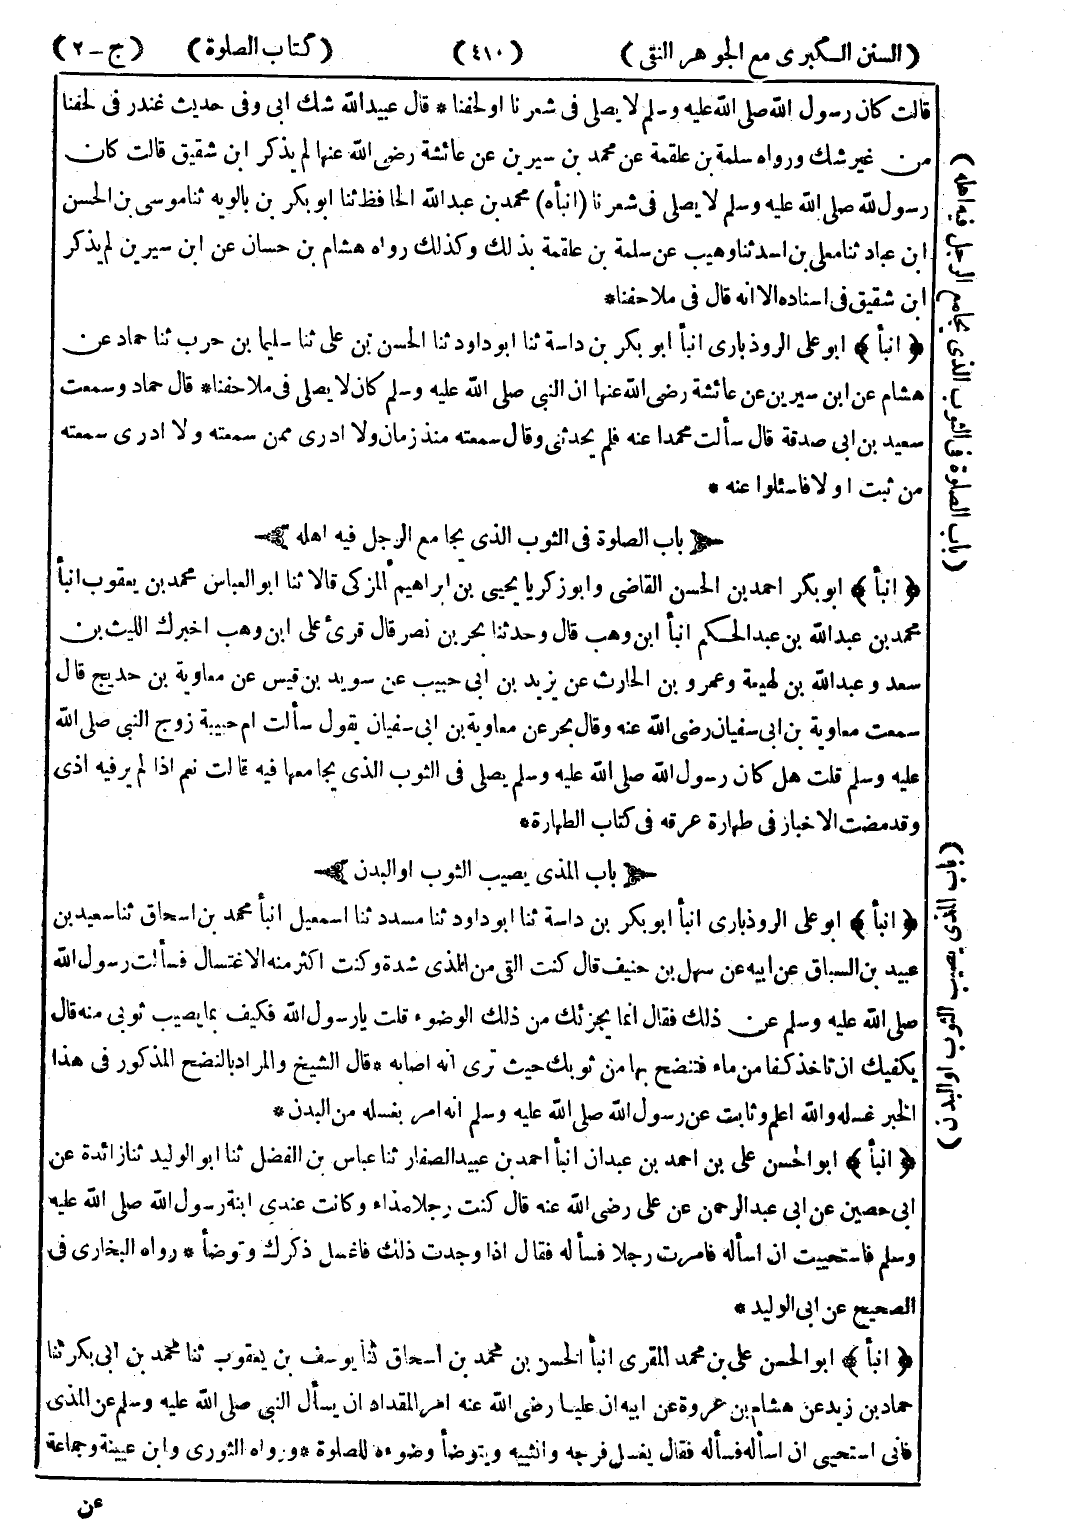 (السنن الكبرى مع الجوهر النقى) (٤١٠) (كتاب الصلوة) (ج - ٢)
قالت كان رسول الله صلى الله عليه وسلم لا يصلى فى شعرنا او لحفنا * قال عبيدالله شك ابى وفى حديث غندر فى لحفنا
من غير شك ورواه سلمة بن علقمة عن محمد بن سيرين عن عائشة رضى الله عنها لم يذكر ابن شقيق قالت كان
رسول لله صلى الله عليه وسلم لا يصلى فى شعرنا (انبأه) محمد بن عبدالله الحافظ ثنا ابوبكر بن بالويه ثنا موسى بن الحسن
ابن عباد ثنا معلى بن اسد ثنا وهيب عن سلمة بن علقمة بذلك وكذلك رواه هشام بن حسان عن ابن سيرين لم يذكر
ابن شقيق فى اسناده الا انه قال فى ملاحفنا*
﴿ انبأ ﴾ ابو على الروذبارى انبأ ابو بكر بن داسة ثنا ابوداود ثنا الحسن بن على ثنا سليما بن حرب ثنا حماد عن
هشام عن ابن سيرين عن عائشة رضى الله عنها ان النبى صلى الله عليه وسلم كان لا يصلى فى ملاحفنا* قال حماد وسمعت
سعيد بن ابى صدقة قال سألت محمدا عنه فلم يحدثنى وقال سمعته منذ زمان ولا ادرى ممن سمعته ولا ادرى سمعته
من ثبت او لا فاسئلوا عنه *
باب الصلوة فى الثوب الذى يجامع الرجل فيه اهله
﴿ انبأ ﴾ ابوبكر احمد بن الحسن القاضى وابوزكريا يحيى بن ابراهيم المزكى قالا ثنا ابو العباس محمد بن يعقوب انبأ
محمد بن عبدالله بن عبدالحكم انبأ ابن وهب قال وحدثنا بحر بن نصر قال قرئ على ابن وهب اخبرك الليث بن
سعد وعبدالله بن لهيعة وعمرو بن الحارث عن يزيد بن ابى حبيب عن سويد بن قيس عن معاوية بن حديج قال
سمعت معاوية بن ابى سفيان رضى الله عنه وقال بحر عن معاوية بن ابى سفيان يقول سألت ام حبيبة زوج النبى صلى الله
عليه وسلم قلت هل كان رسول الله صلى الله عليه وسلم يصلى فى الثوب الذى يجامعها فيه قالت نعم اذا لم ير فيه اذى
وقد مضت الاخباز فى طهارة عرقه فى كتاب الطهارة*
باب المذى يصيب الثوب اوالبدن
﴿ انبأ ﴾ ابوعلى الروذبارى انبأ ابوبكر بن داسة ثنا ابوداود ثنا مسدد ثنا اسمعيل انبأ محمد بن اسحاق ثنا سعيد بن
عبيد بن السباق عن ابيه عن سهل بن حنيف قال كنت القى من المذى شدة وكنت اكثر منه الاغتسال فسألت رسول الله
صلى الله عليه وسلم عن ذلك فقال انما يجزئك من ذلك الوضوء قلت يارسول الله فكيف بما يصيب ثوبى منه قال
يكفيك ان تاخذ كفا من ماء فتنضح بها من ثوبك حيث ترى انه اصابه * قال الشيخ والمراد بالنضح المذكور فى هذا
الخبر غسله والله اعلم وثابت عن رسول الله صلى الله عليه وسلم انه امر بغسله من البدن *
﴿ انبأ ﴾ ابوالحسن على بن احمد بن عبدان انبأ احمد بن عبيدالصفار ثنا عباس بن الفضل ثنا ابوالوليد ثنا زائدة عن
ابى حصين عن ابى عبدالرحمن عن على رضى الله عنه قال كنت رجلا مذاء وكانت عندى ابنة رسول الله صلى الله عليه
وسلم فاستحييت ان اسأله فامرت رجلا فسأله فقال اذا وجدت ذلك فاغسل ذكرك وتوضأ * رواه البخارى فى
الصحيح عن ابى الوليد *
﴿ انبأ ﴾ ابوالحسن على بن محمد المقرى انبأ الحسن بن محمد بن اسحاق ثنا يوسف بن يعقوب ثنا محمد بن ابى بكر ثنا
حماد بن زيد عن هشام بن عروة عن ابيه ان عليا رضى الله عنه امر المقداد ان يسأل النبى صلى الله عليه وسلم عن المذى
فانى استحيى ان اسأله فسأله فقال يغسل فرجه وانثييه ويتوضأ وضوءه للصلوة * ورواه الثورى وابن عيينة وجماعة
عن
(باب الصلوة فى الثوب الذى يجامع الرجل فيه اهله)
(باب المذى يصيب الثوب اوالبدن)